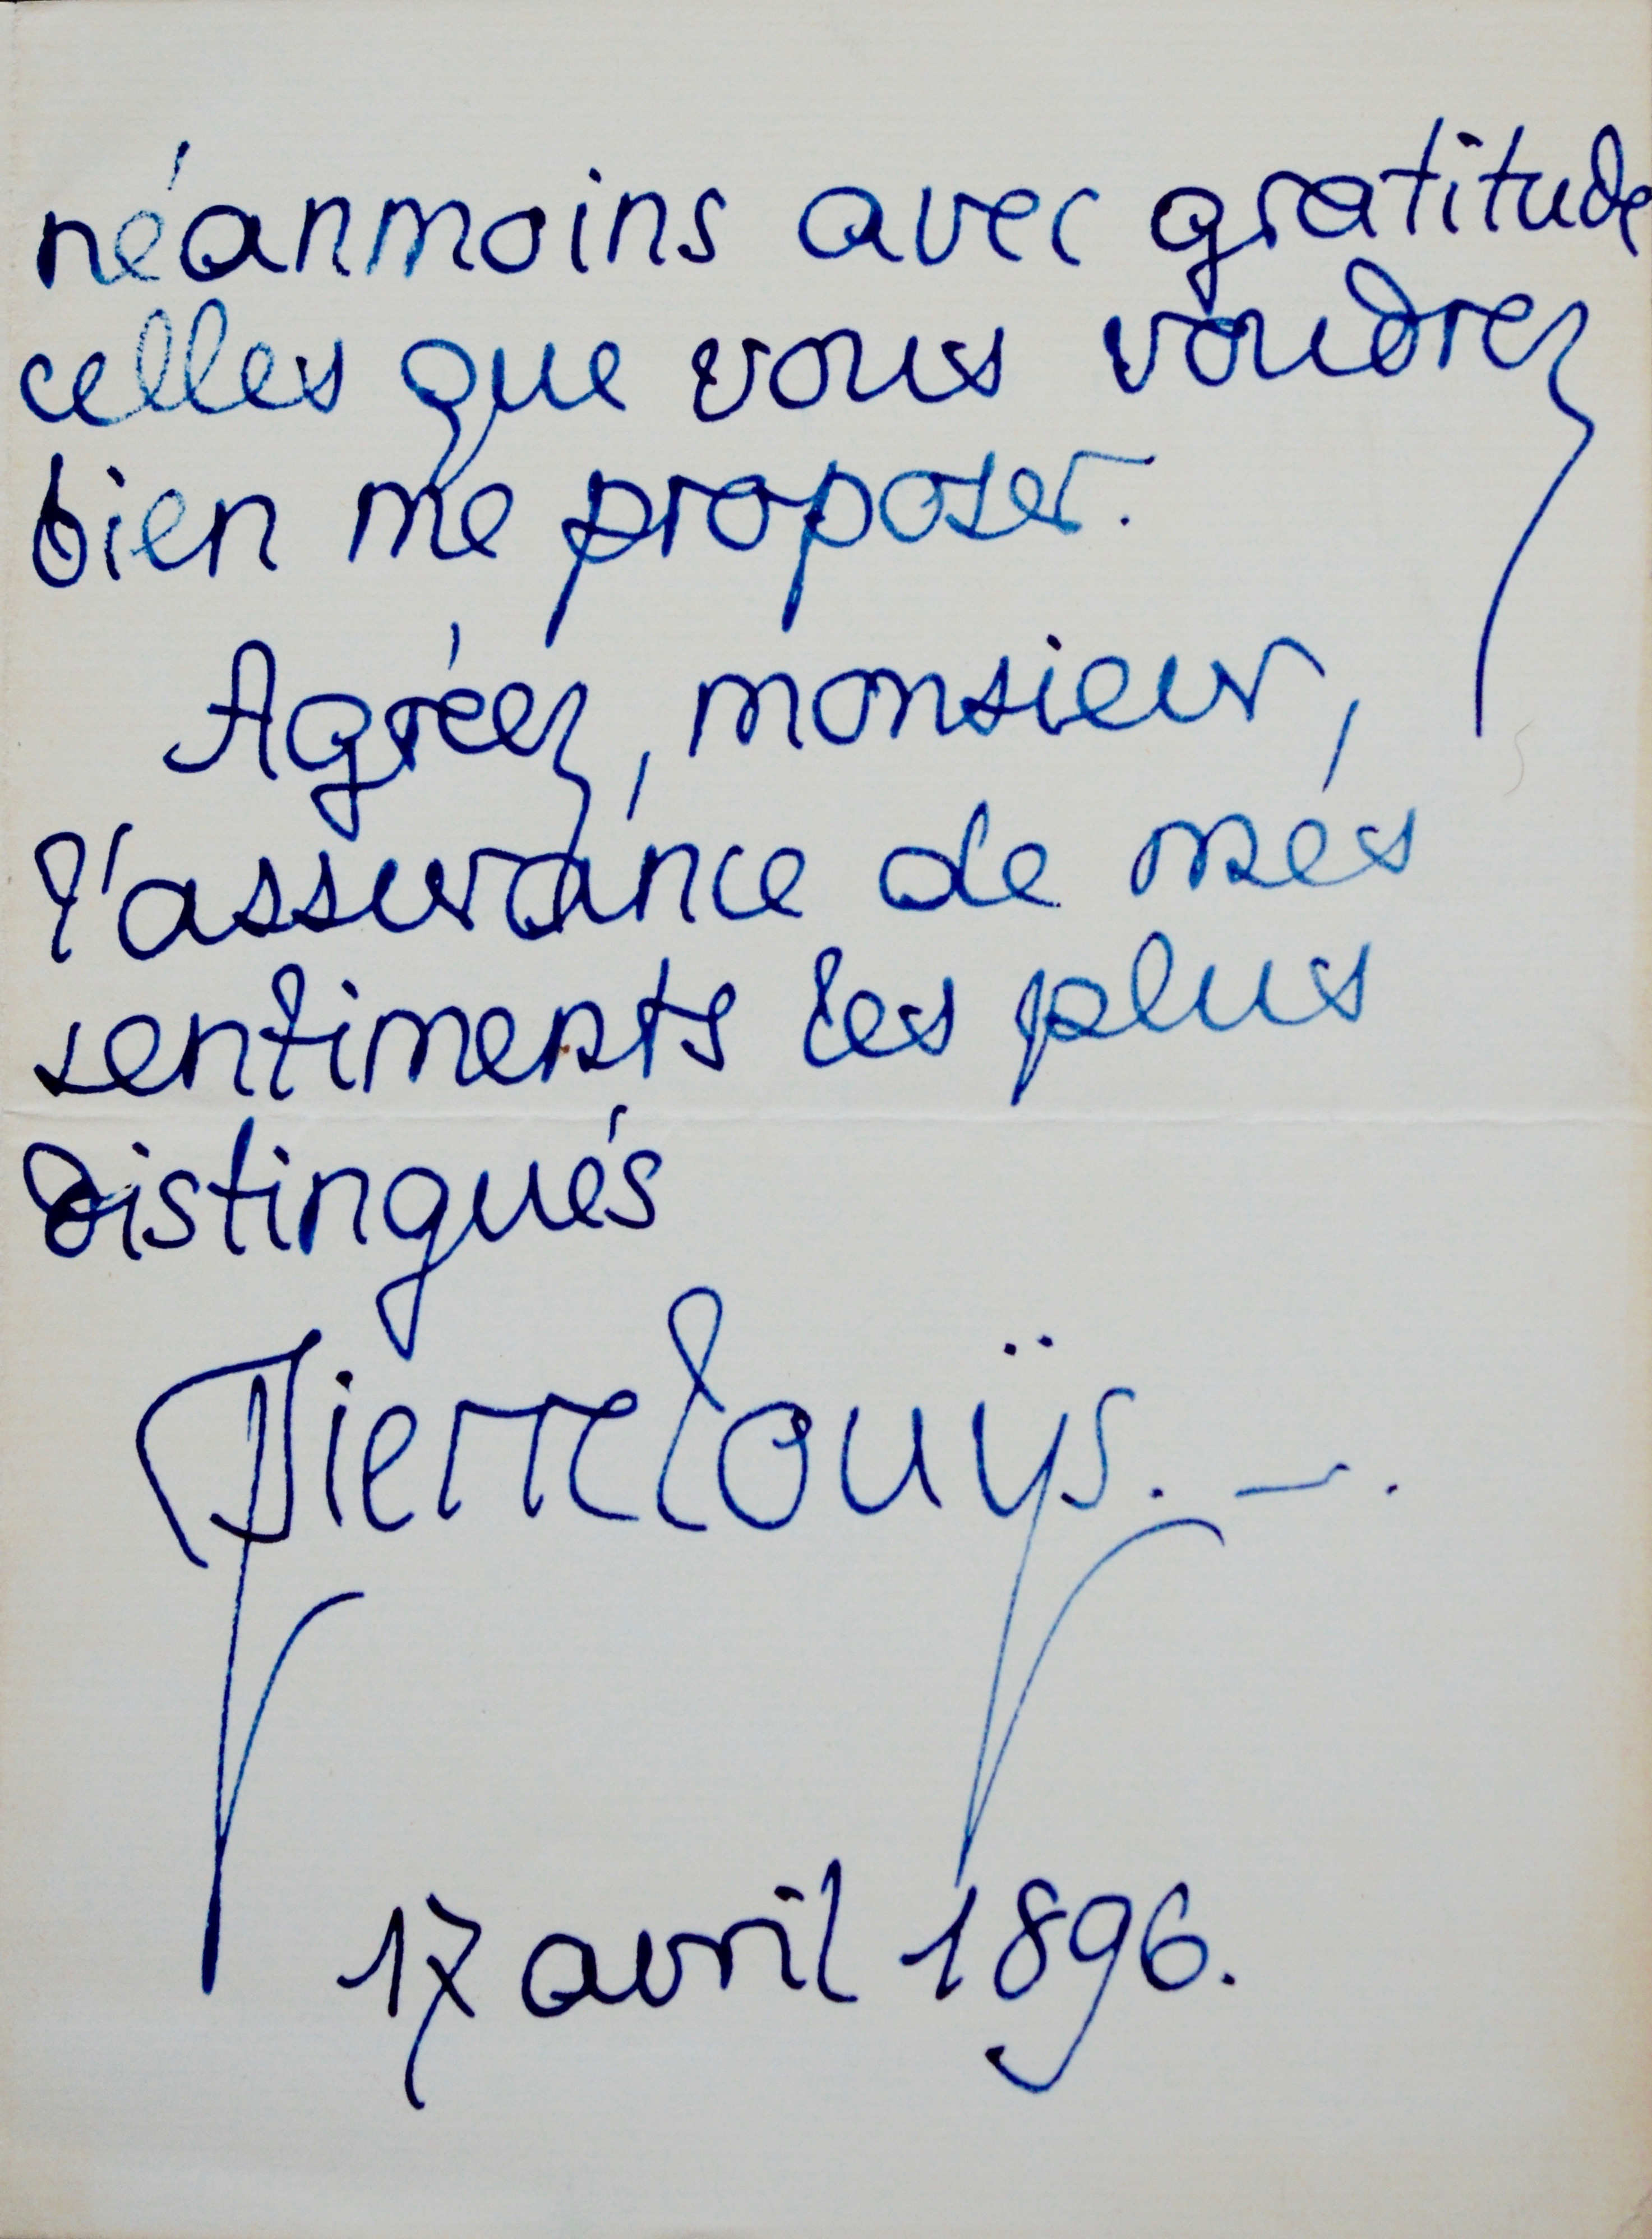 néanmoins avec gratitude
celles que vous voudrez
bien me proposer.
Agréez, monsieur,
l'assurance de mes
sentiments les plus
distingués
Pierre Louÿs. —.
17 avril 1896.